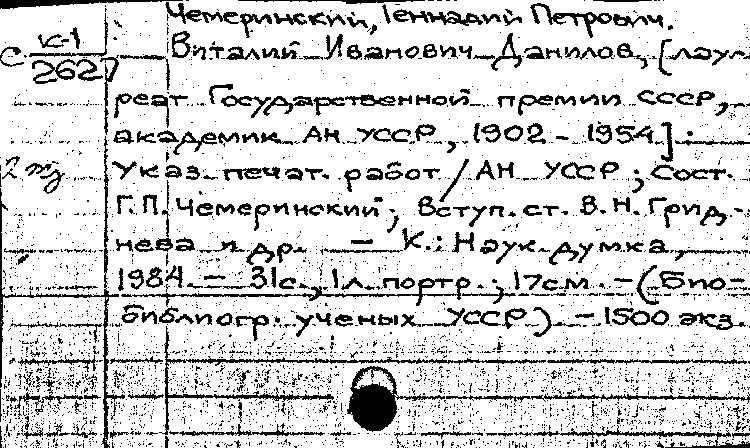 Чемеринский, Геннадий Петрович.
С К-1
2627
Виталий Иванович Данилов, [лау-
реат Государственной премии СССР,
академик АН УССР, 1902 - 1954]:
2
Указ. печат. работ / АН УССР ; Сост.
Г.П. Чемеринский ; Вступ. ст. В. Н. Грид-
нева и др. — К.: Наук. думка,
1984. — 31с., 1л. портр. ; 17см. — (Био-
библиогр. ученых УССР). — 1500 экз.